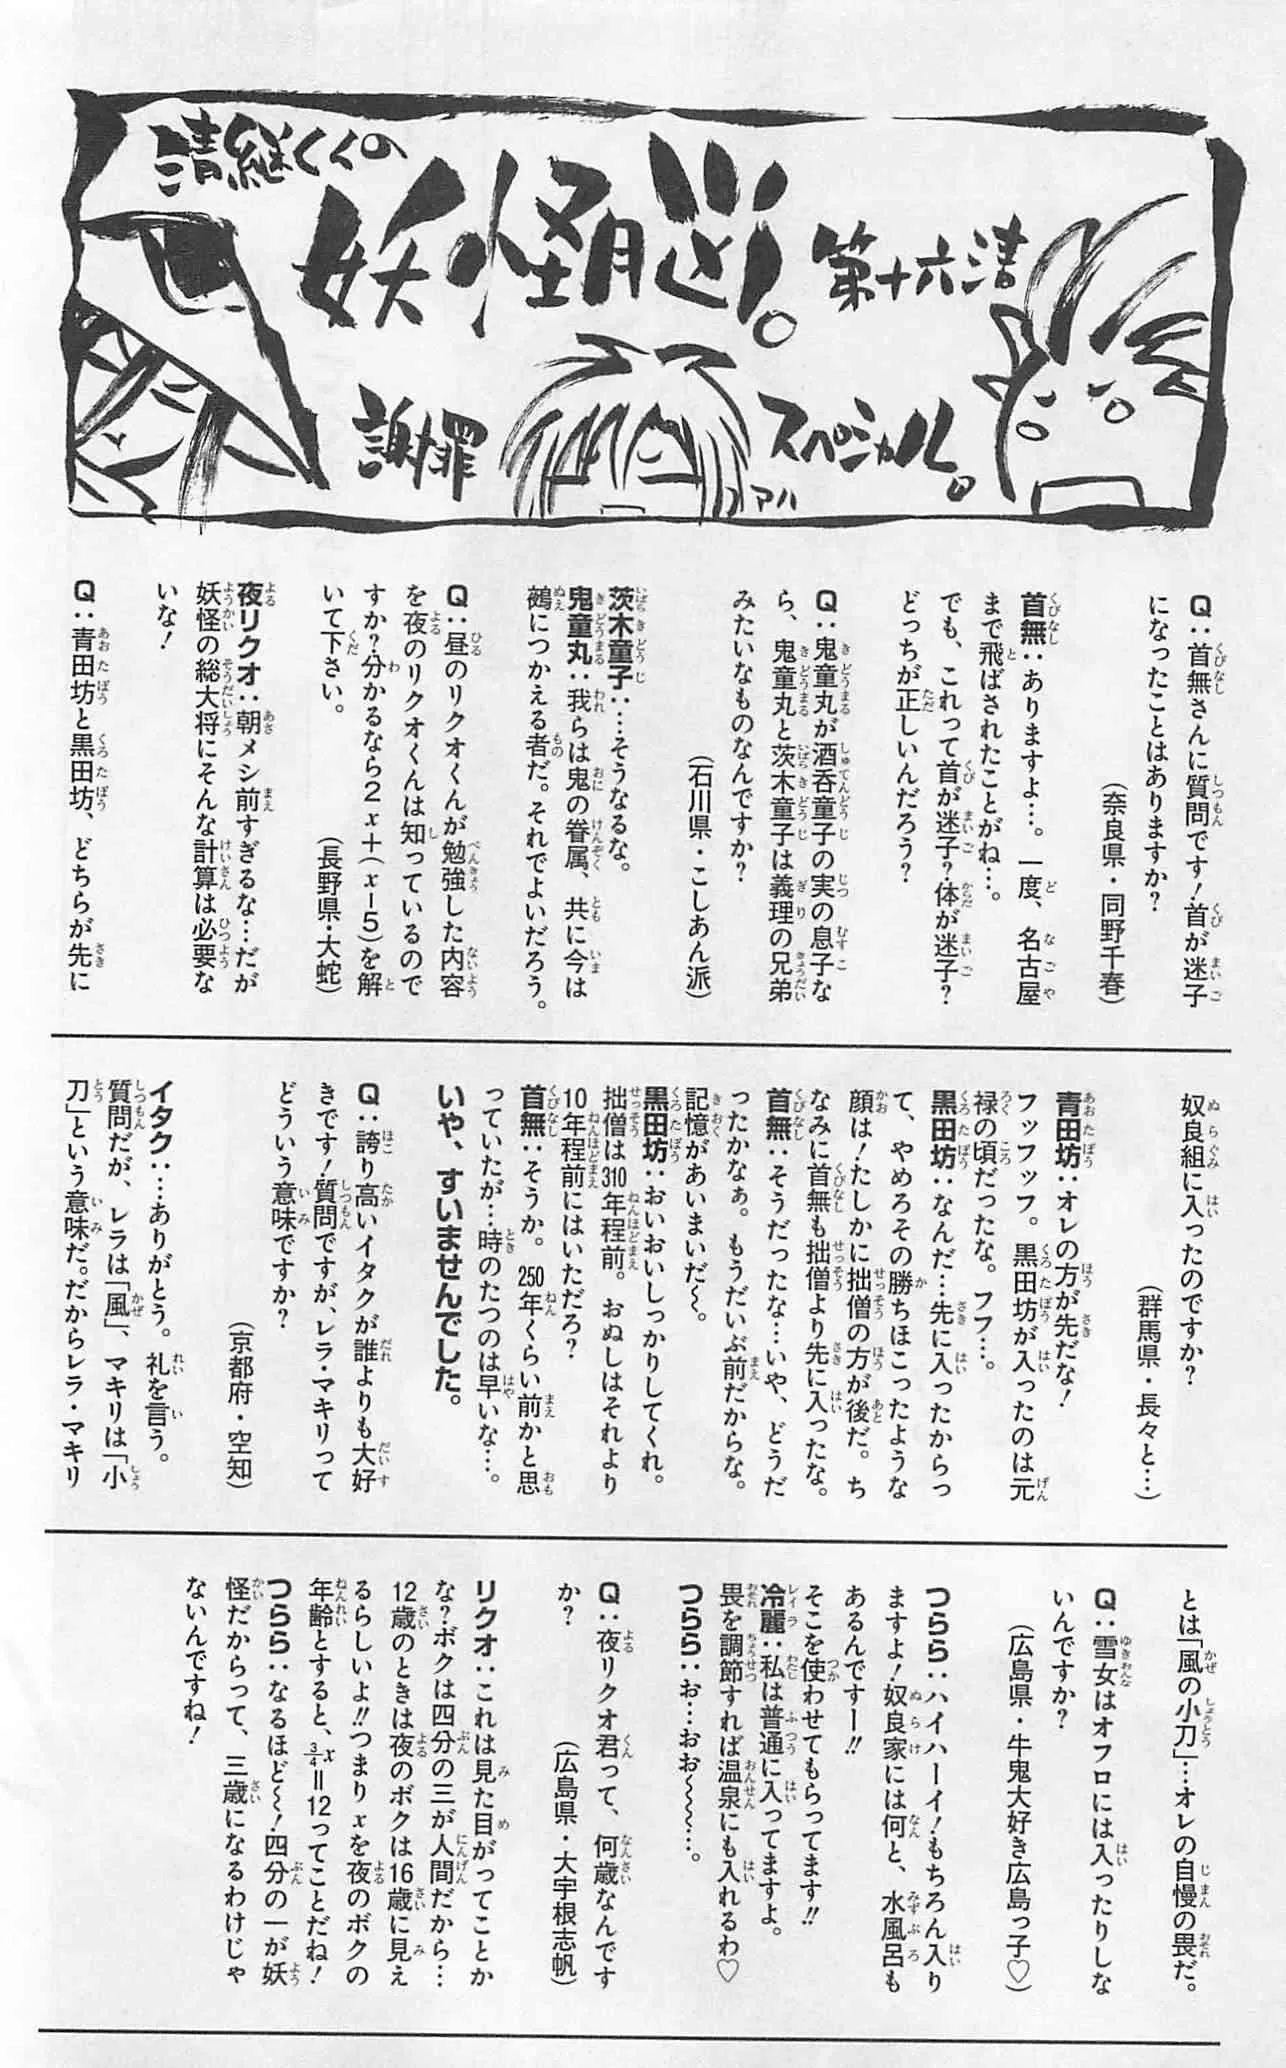 清継くんの
妖怪脳。
第十六清
謝罪
スペシャル。
Q：首無さんに質問です！首が迷子
になったことはありますか？
（奈良県・同野千春）
首無：ありますよ…。一度、名古屋
まで飛ばされたことがね…。
でも、これって首が迷子？体が迷子？
どっちが正しいんだろう？
Q：鬼童丸が酒呑童子の実の息子な
ら、鬼童丸と茨木童子は義理の兄弟
みたいなものなんですか？
（石川県・こしあん派）
茨木童子：…そうなるな。
鬼童丸：我らは鬼の眷属、共に今は
鵺につかえる者だ。それでよいだろう。
Q：昼のリクオくんが勉強した内容
を夜のリクオくんは知っているので
すか？分かるなら2x＋（x－5）を解
いて下さい。
（長野県・大蛇）
夜リクオ：朝メシ前すぎるな…だが
妖怪の総大将にそんな計算は必要な
いな！
Q：青田坊と黒田坊、どちらが先に
奴良組に入ったのですか？
（群馬県・長々と…）
青田坊：オレの方が先だな！
フッフッフ。黒田坊が入ったのは元
禄の頃だったな。フフ…。
黒田坊：なんだ…先に入ったからっ
て、やめろその勝ちほこったような
顔は！たしかに拙僧の方が後だ。ち
なみに首無も拙僧より先に入ったな。
首無：そうだったな…いや、どうだ
ったかなぁ。もうだいぶ前だからな。
記憶があいまいだ～。
黒田坊：おいおいしっかりしてくれ。
拙僧は310年程前。おぬしはそれより
10年程前にはいただろ？
首無：そうか。250年くらい前かと思
っていたが…時のたつのは早いな…。
いや、すいませんでした。
Q：誇り高いイタクが誰よりも大好
きです！質問ですが、レラ・マキリって
どういう意味ですか？
（京都府・空知）
イタク：…ありがとう。礼を言う。
質問だが、レラは「風」、マキリは「小
刀」という意味だ。だからレラ・マキリ
とは「風の小刀」…オレの自慢の畏だ。
Q：雪女はオフロには入ったりしな
いんですか？
（広島県・牛鬼大好き広島っ子♡）
つらら：ハイハーイ！もちろん入り
ますよ！奴良家には何と、水風呂も
あるんですー!!
そこを使わせてもらってます!!
冷麗：私は普通に入ってますよ。
畏を調節すれば温泉にも入れるわ♡
つらら：お…おお～～～…。
Q：夜リクオ君って、何歳なんです
か？
（広島県・大宇根志帆）
リクオ：これは見た目がってことか
な？ボクは四分の三が人間だから…
12歳のときは夜のボクは16歳に見え
るらしいよ!!つまりxを夜のボクの
年齢とすると、¾x＝12ってことだね！
つらら：なるほど～！四分の一が妖
怪だからって、三歳になるわけじゃ
ないんですね！